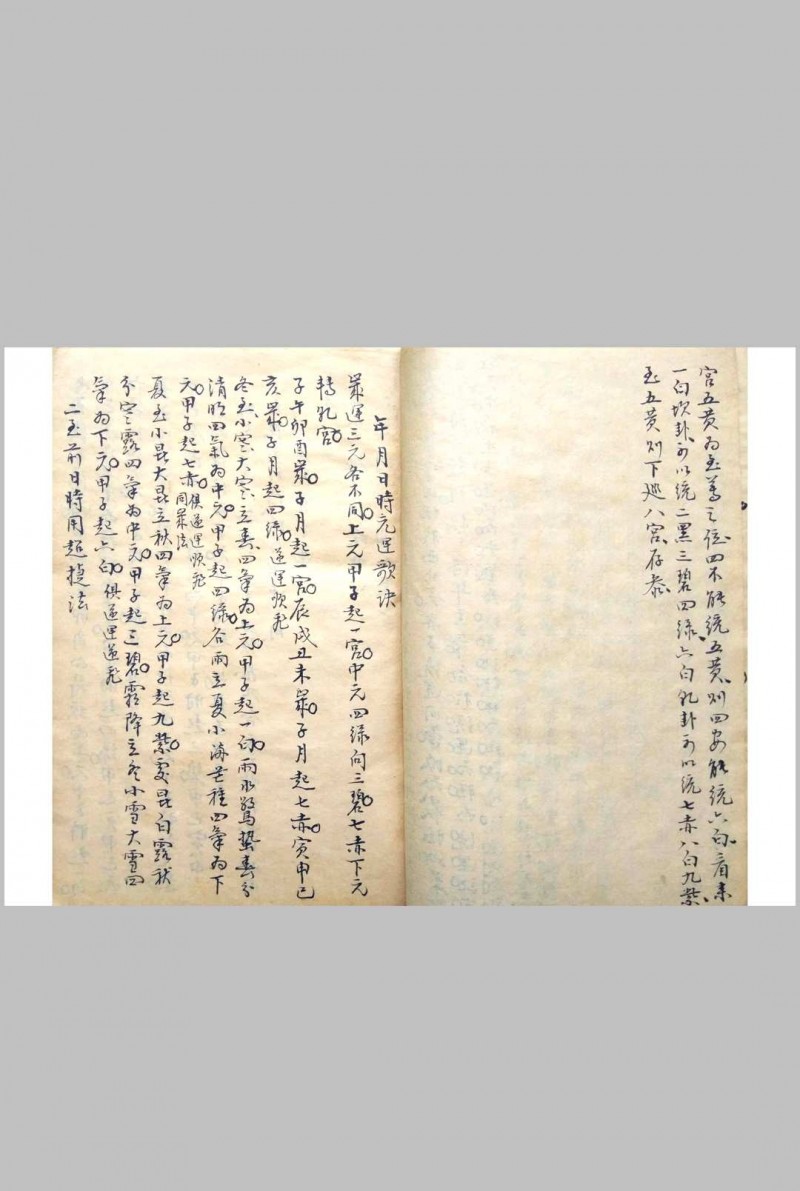 宮五黃為至善之位四不能統五黃則四安能統六白看來
一白坎卦可以統二黑三碧四綠六白乾卦可以統七赤八白九紫
至五黃則下遊八宮存恭
年月日時元運歌訣
嵗運三元各不同上元甲子起一宮中元四綠向三碧七赤下元
轉乳宮
子午卯酉嵗子月起一宮辰戌丑未嵗子月起七赤寅申巳
亥嵗子月起四綠逆運順飛
冬至小寒大寒立春四氣為上元甲子起一白雨水驚蟄春分
清明四氣為中元甲子起四綠谷雨立夏小滿芒種四氣為下
元甲子起七赤俱逆運順飛同嵗法
夏至小暑大暑立秋四氣為上元甲子起九紫處暑白露秋
分寒露四氣為中元甲子起三碧霜降立冬小雪大雪四
氣為下元甲子起六白俱逆運逆飛
二至前日時用超捷法